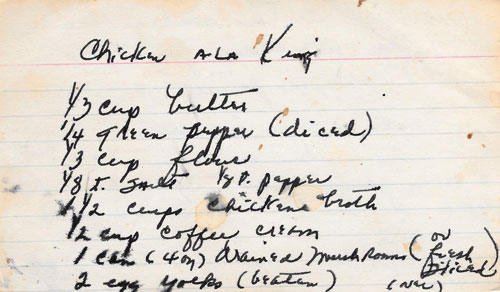 Chicken ALA King
1/3 cup butter
1/4 green pepper (diced)
1/3 cup flour
1/8 t. salt 1/8 t. pepper
1 1/2 cups chicken broth
1/2 cup coffee cream
1 can (4 oz) drained mushrooms (or fresh sliced)
2 egg yolks (beaten) (over)